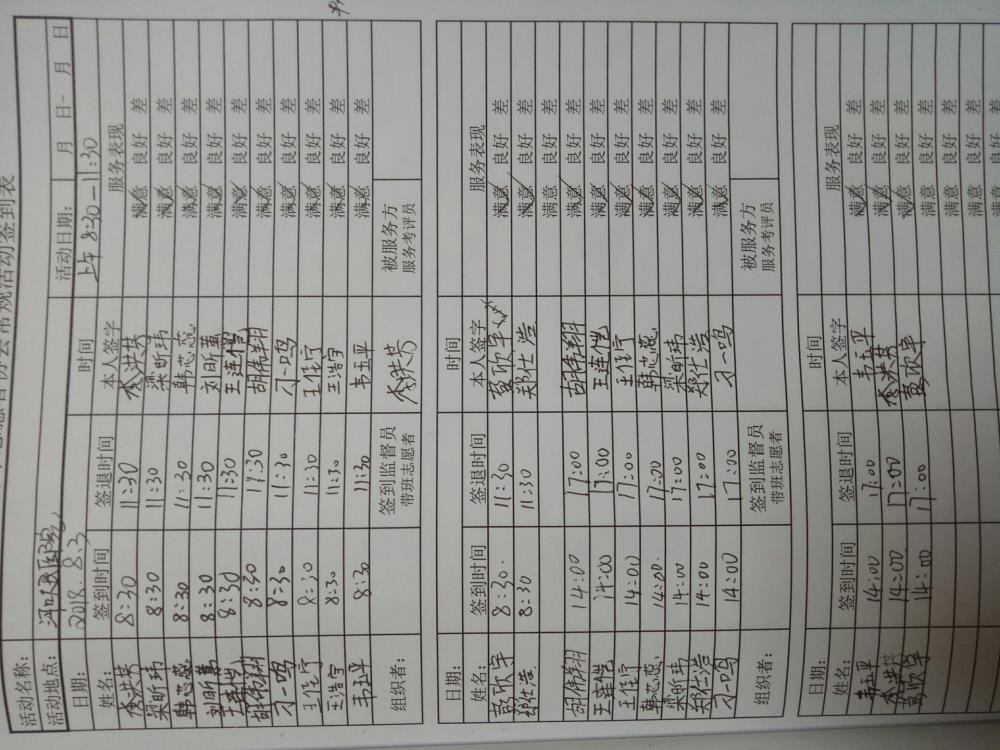 志愿者协会常规活动签到表
活动名称：
活动地点： 活动日期： 月 日- 月 日
日期： 2018.8.3 时间 上午 8:30-11:30
姓名： 签到时间 签退时间 本人签字 服务表现
李洪英 8:30 11:30 李洪英 满意 良好 差
梁昕玮 8:30 11:30 梁昕玮 满意 良好 差
韩芯蕊 8:30 11:30 韩芯蕊 满意 良好 差
刘昕萬 8:30 11:30 刘昕萬 满意 良好 差
王连恺 8:30 11:30 王连恺 满意 良好 差
胡伟翔 8:30 11:30 胡伟翔 满意 良好 差
刁一鸣 8:30 11:30 刁一鸣 满意 良好 差
王佳宁 8:30 11:30 王佳宁 满意 良好 差
王浩宇 8:30 11:30 王浩宇 满意 良好 差
韦玉平 8:30 11:30 韦玉平 满意 良好 差
组织者： 签到监督员 带班志愿者 李洪英 被服务方 服务考评员
日期： 时间
姓名： 签到时间 签退时间 本人签字 服务表现
彭欣宇 8:30 11:30 彭欣宇 满意 良好 差
郑仕浩 8:30 11:30 郑仕浩 满意 良好 差
满意 良好 差
胡伟翔 14:00 17:00 胡伟翔 满意 良好 差
王连恺 14:00 17:00 王连恺 满意 良好 差
王佳宁 14:00 17:00 王佳宁 满意 良好 差
韩芯蕊 14:00 17:00 韩芯蕊 满意 良好 差
梁昕玮 14:00 17:00 梁昕玮 满意 良好 差
郑仕浩 14:00 17:00 郑仕浩 满意 良好 差
刁一鸣 14:00 17:00 刁一鸣 满意 良好 差
组织者： 签到监督员 带班志愿者 被服务方 服务考评员
日期： 时间
姓名： 签到时间 签退时间 本人签字 服务表现
韦玉平 14:00 17:00 韦玉平 满意 良好 差
李洪英 14:00 17:00 李洪英 满意 良好 差
彭欣宇 14:00 17:00 彭欣宇 满意 良好 差
满意 良好 差
满意 良好 差
满意 良好 差